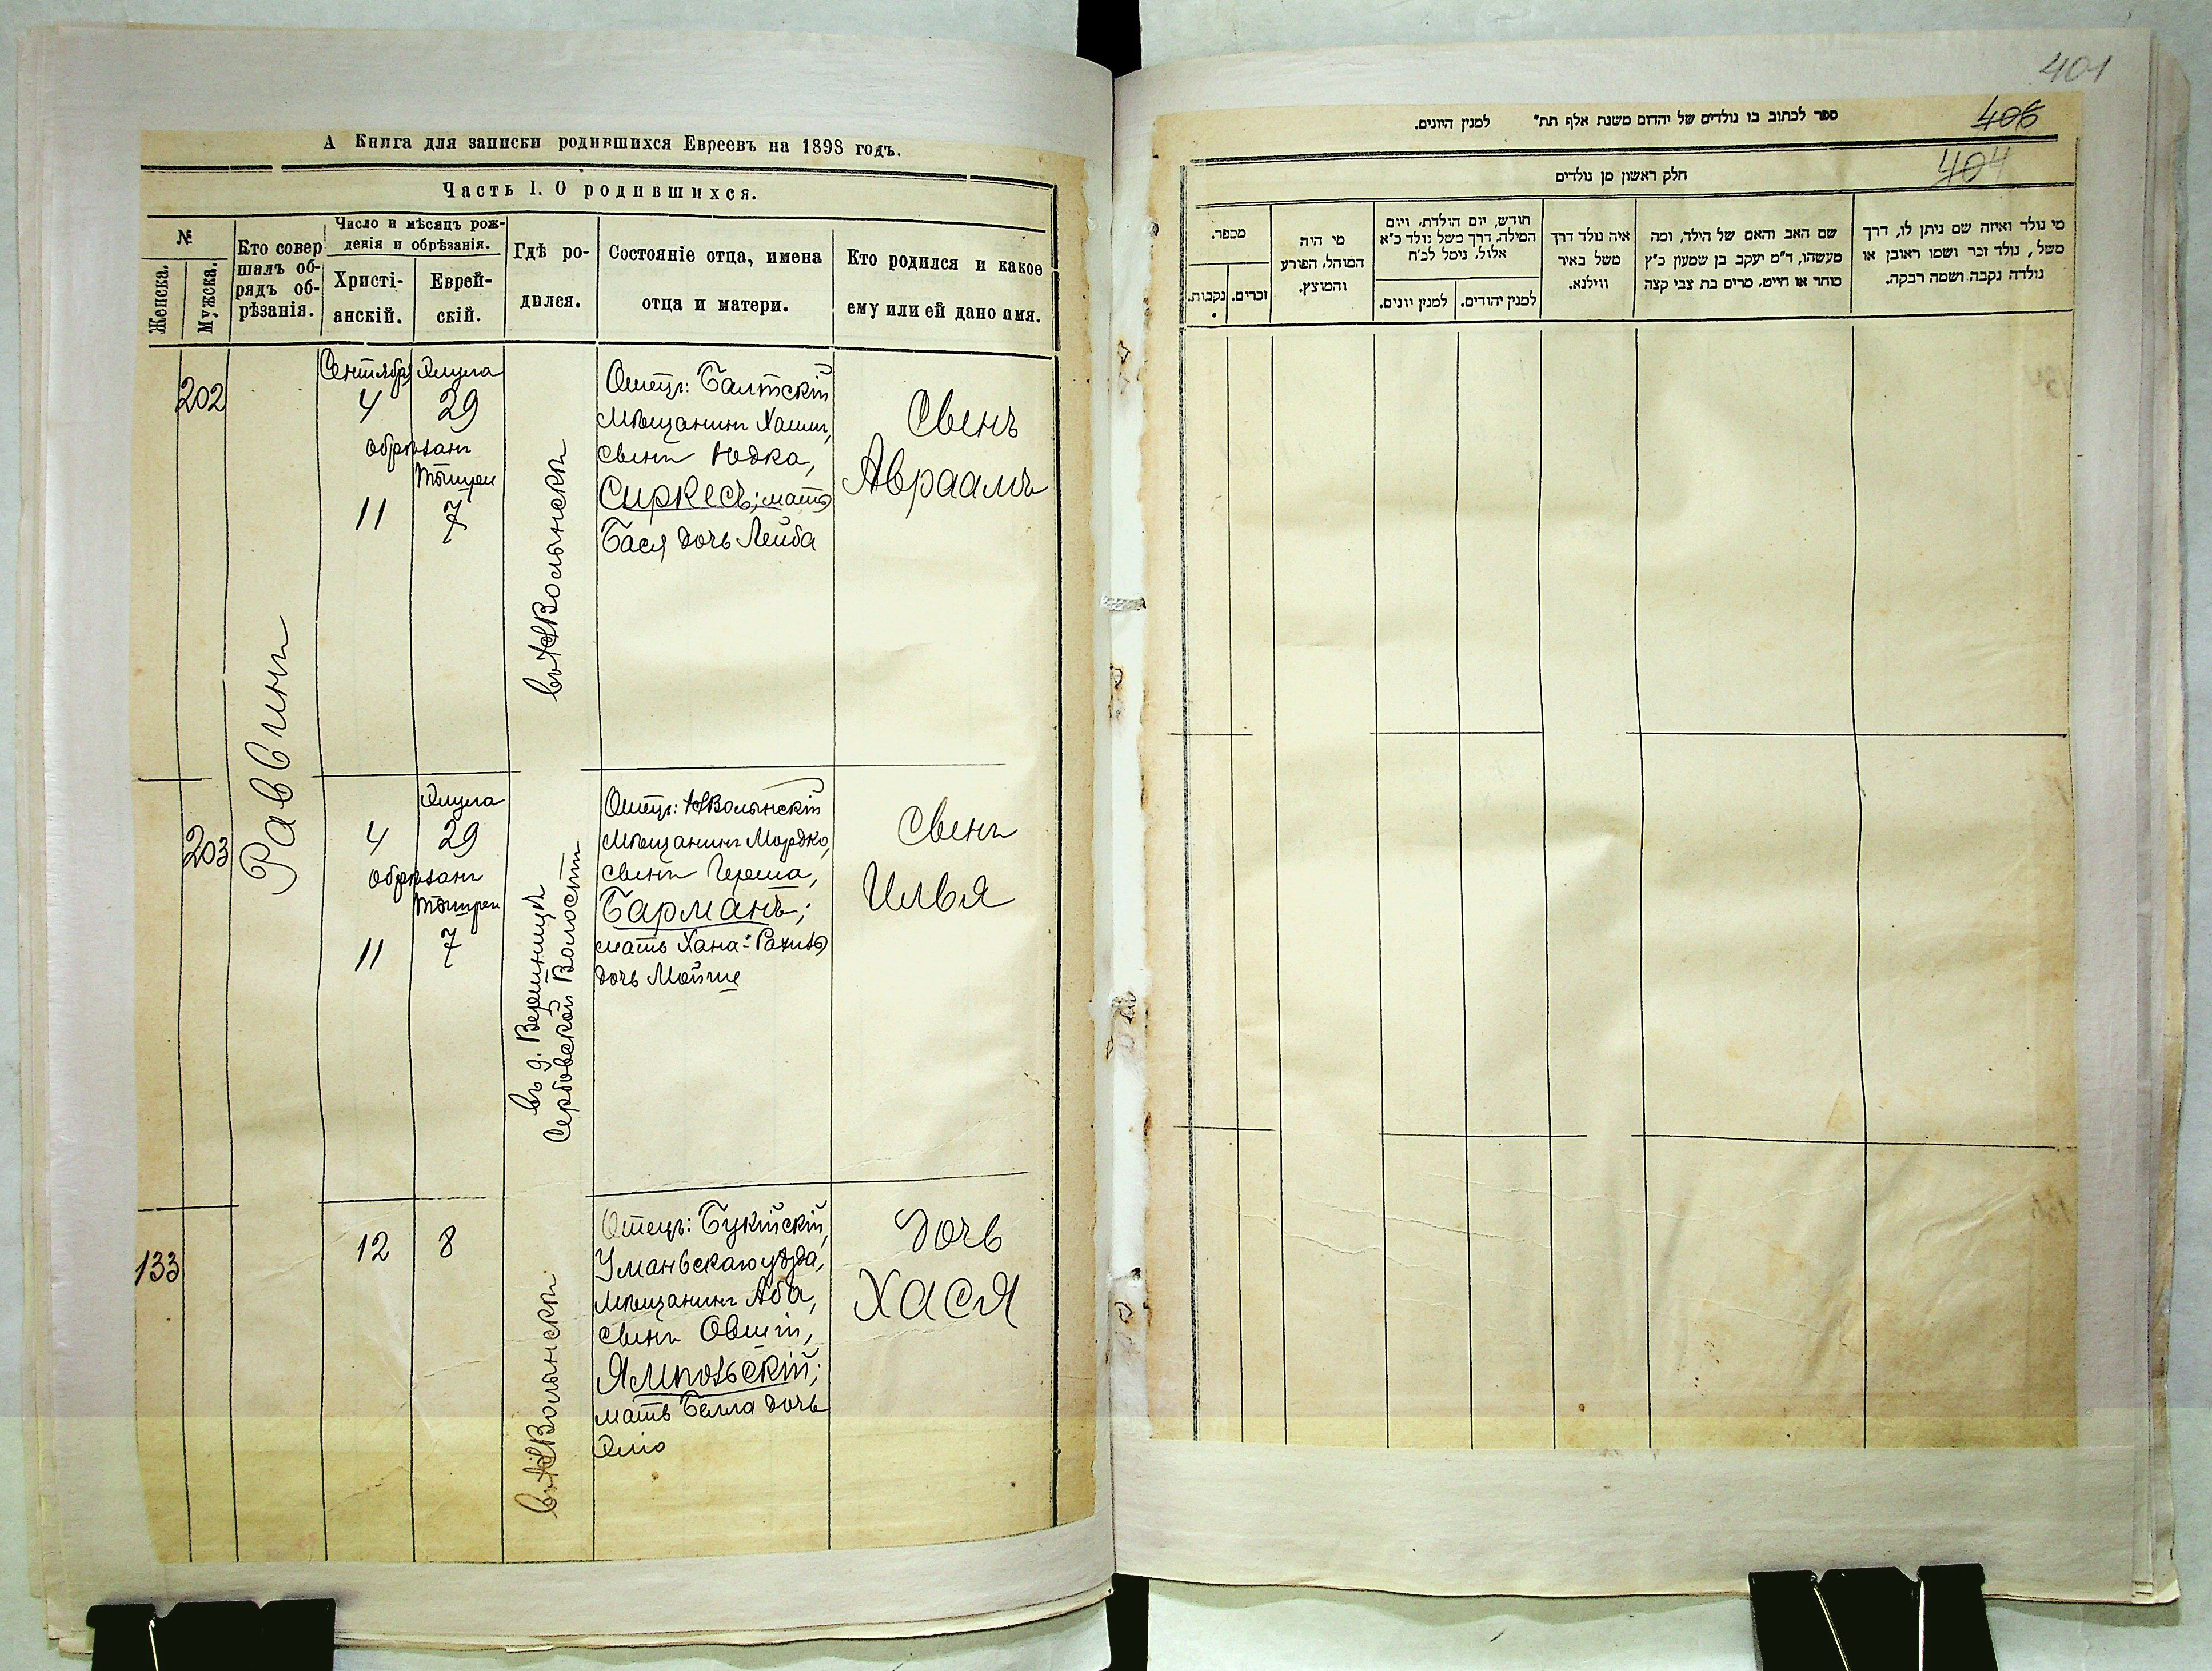 А Книга для записки родившихся Евреевъ на 1898 годъ.
Часть I. О родившихся.
№
Женска.
Мужска.
Кто совер
шалъ об-
рядъ об-
рѣзанія.
Число и мѣсяцъ рож-
денія и обрѣзанія.
Христі-
анскій.
Еврей-
скій.
Гдѣ ро-
дился.
Состояніе отца, имена
отца и матери.
Кто родился и какое
ему или ей дано имя.
Раввинъ
202
Сентября Элула
4 29
обрѣзанъ
Тышреи
11 7
въ НВолынскѣ
Отецъ: Балтскій
мѣщанинъ Хаимъ,
сынъ Юдка,
Сиркесъ; мать
Бася дочь Лейба
Сынъ
Авраамъ
203
Элула
4 29
обрѣзанъ
Тышреи
11 7
въ д. Вершницѣ
Сербовской Волости
Отецъ: НВолынскій
мѣщанинъ Мордко,
сынъ Герша,
Барманъ;
мать Хана-Рахиль
дочь Мойше
Сынъ
Илья
133
12 8
въ НВолынскѣ
Отецъ: Букійскій,
Уманьскаго уѣзда,
мѣщанинъ Аба,
сынъ Овшій,
Ямпольскій;
мать Бейла дочь
Эліо
Дочь
Хася
401
406
404
ספר לכתוב בו נולדים של יהדום משנת אלף תת" למנין היונים.
חלק ראשון מן נולדים
מספר.
נקבות.
זכרים.
מי היה
המוהל, הפורע
והמוצץ.
חודש, יום הולדת, ויום
המילה, דרך משל נולד כ"א
אלול, נימל לכ"ח
למנין יונים.
למנין יהודים.
איה נולד דרך
משל באיר
ווילנא.
שם האב והאם של הילד, ומה
מעשהו, ד"מ יעקב בן שמעון כ"ץ
סוחר או חייט, מרים בת צבי קצה
מי נולד ואיזה שם ניתן לו, דרך
משל, נולד זכר ושמו ראובן או
נולדה נקבה ושמה רבקה.